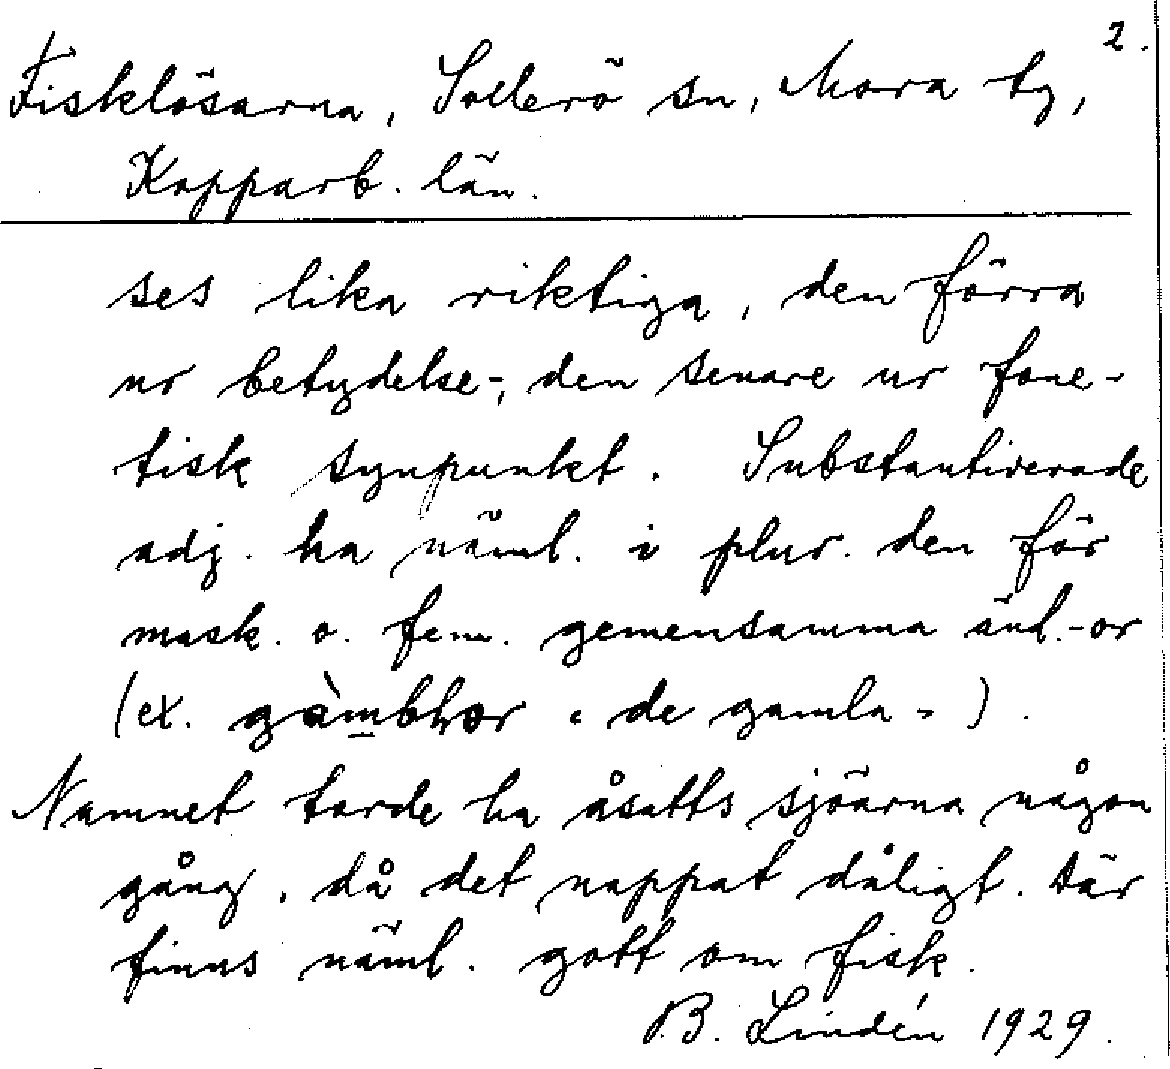 2.
Fisklösarna, Sollerö sn, Mora tg,
Kopparb. län.
ses lika riktiga, den förra
ur betydelse-, den senare ur fone-
tisk synpunkt. Substantiverade
adj. ha näml. i plur. den för
mask. o. fem. gemensamma änd. -or
(ex. gàmbhor "de gamla").
Namnet torde ha åsatts sjöarna någon
gång, då det nappat dåligt. Där
finns näml. gott om fisk.
B. Lindén 1929.